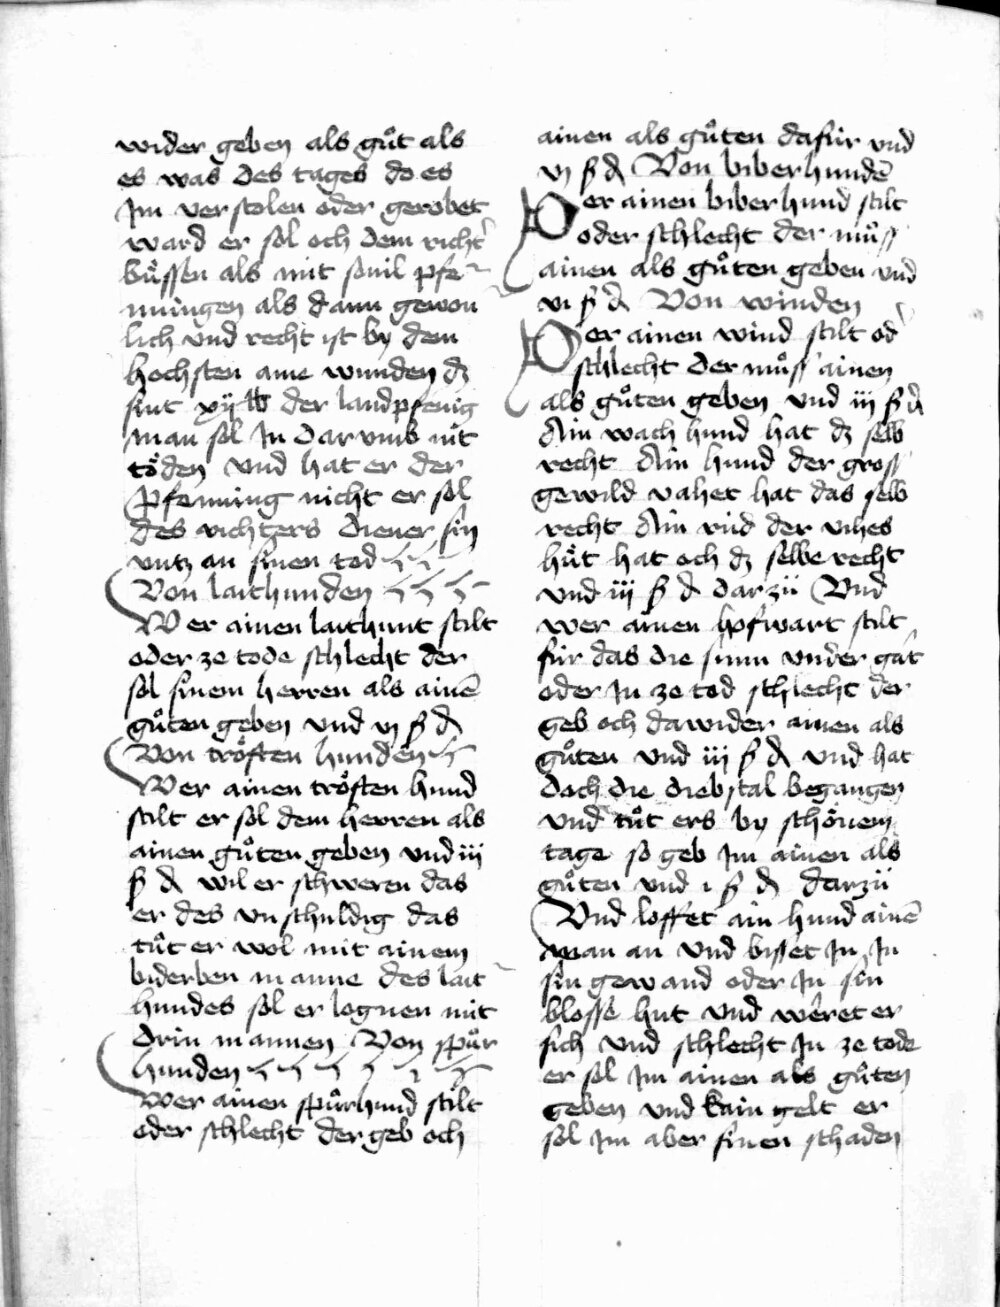 wider geben als guͦt als
es was des tages do es
Im verstolen oder gerobet
ward er sol och dem richt͛
buͤssen als mit souil pfe
nningen als dann gewon
lich vnd recht ist by dem
hochsten ane wunden dz
sint xij lb der landpfenig
man sol In darvmb nit
toͤden vnd hat er der
Pfenning nicht er sol
des richters diener sin
vntz an sinen tod
Von laithunden
Wer ainen laithunt stilt
oder ze tode schlecht der
sol sinem herren als ainē
guͦten geben vnd vj ß ₰
Von troͤsten hunden
Wer ainen troͤsten hund
stilt er sol dem herren als
ainen guͦten geben vnd iij
ß ₰ wil er schweren das
er des vnschuldig das
tuͦt er wol mit ainem
biderben manne des lait
hundes sol er lognen mit
drin mannen Von spuͤr
hunden
Wer ainen spuͤrhund stilt
oder schlecht der geb och
ainen als guͦten dafuͤr vnd
vj ß ₰ Von biberhundē
Wer ainen biberhund stilt
oder schlecht der muͦss
ainen als guͦten geben vnd
vi ß ₰ Von winden
Wer ainen wind stilt od͛
schlecht der muͦss ainen
als guͦten geben vnd iij ß ₰
Ain wach hund hat dz selb
recht Ain hund der gross
gewild vahet hat das selb
recht Ain rüd der vihes
huͤt hat och dz selbe recht
vnd iij ß ₰ darzü Vnd
wer ainen hofwart stilt
für das die sunn vnder gat
oder In ze tod schlecht der
geb och dawider ainen als
guͦten vnd iij ß ₰ vnd hat
doch die diebstal begangen
vnd tuͦt ers by schoͤnem
tage so geb Im ainen als
guͦten vnd i ß ₰ darzü
Vnd loffet ain hund ainē
man an vnd bisset In In
sin gewand oder In sin
blosse hut vnd weret er
sich vnd schlecht In ze tode
er sol Im ainen als guͦten
geben vnd kain gelt er
sol Im aber sinen schaden